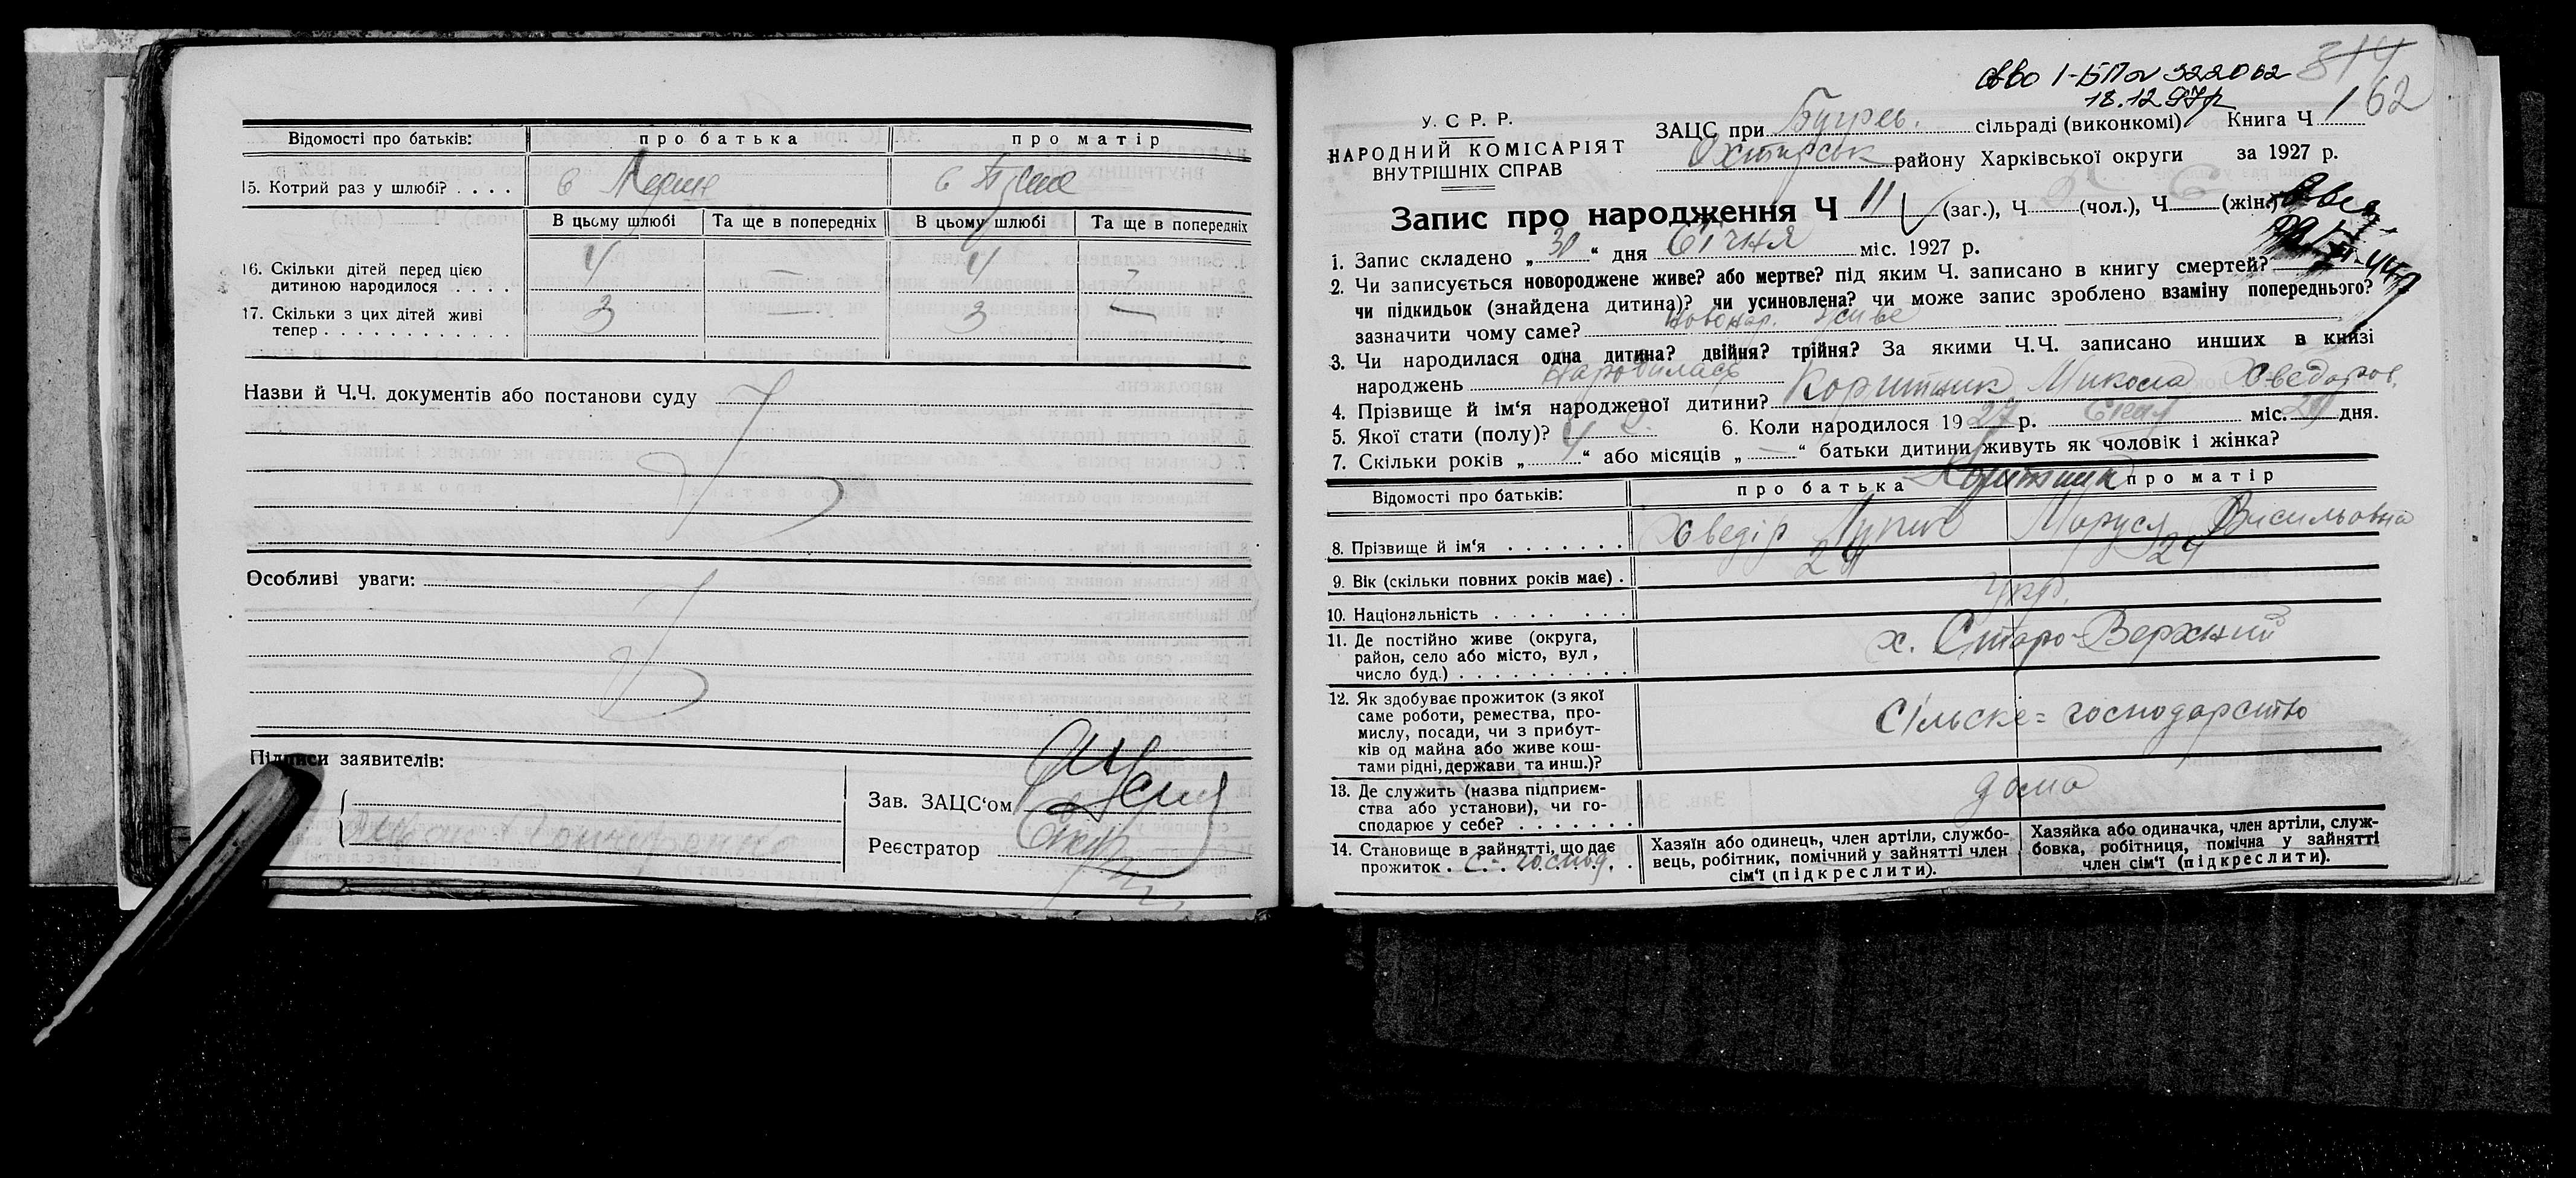 Відомості про батьків: про батька про матір
15. Котрий раз у шлюбі? . . . . в Перше в Перше
В цьому шлюбі Та ще в попередніх В цьому шлюбі Та ще в попередніх
16. Скільки дітей перед цією
дитиною народилося . . . . 4 — 4 —
17. Скільки з цих дітей живі
тепер . . . . . . . . . . . 3 — 3 —
Назви й Ч.Ч. документів або постанови суду
Особливі уваги:
Підписи заявителів:
Зав. ЗАЦС‘ом
Реєстратор
314
18.12.97р
62
У. С. Р. Р.
НАРОДНИЙ КОМІСАРІЯТ
ВНУТРІШНІХ СПРАВ
ЗАЦС при Бугрев. сільраді (виконкомі) Книга Ч 1
Охтирськ району Харківської округи за 1927 р.
Запис про народження Ч 11 (заг.), Ч (чол.), Ч (жін.)
1. Запис складено „ 30 “ дня січня міс. 1927 р.
2. Чи записується новороджене живе? або мертве? під яким Ч. записано в книгу смертей?
чи підкидьок (знайдена дитина)? чи усиновлена? чи може запис зроблено взаміну попереднього?
зазначити чому саме? новонар. живе
3. Чи народилася одна дитина? двійня? трійня? За якими Ч.Ч. записано инших в книзі
народжень народилась
4. Прізвище й ім‘я народженої дитини? Коритник Микола Хведоров.
5. Якої стати (полу)? Ч 6. Коли народилося 19 27 р. січня міс. дня.
7. Скільки років „ “ або місяців „ — “ батьки дитини живуть як чоловік і жінка?
Відомості про батьків: про батька про матір
Коритник
8. Прізвище й ім‘я . . . . . . . Хведір Маруся Васильовна
9. Вік (скільки повних років має) . 24 24
10. Національність . . . . . . . . Укр.
11. Де постійно живе (округа,
район, село або місто, вул,
число буд.) . . . . . . . . . . х. Старо-Верхний
12. Як здобуває прожиток (з якої
саме роботи, ремества, про-
мислу, посади, чи з прибут-
ків од майна або живе кош-
тами рідні, держави та инш.)? Сільске=господарство
13. Де служить (назва підприєм-
ства або установи), чи го-
сподарює у себе? . . . . . . . дома
14. Становище в зайнятті, що дає
прожиток . С=господ.
Хазяїн або одинець, член артіли, службо-
вець, робітник, помічний у зайнятті член
сім‘ї (підкреслити).
Хазяйка або одиначка, член артіли, служ-
бовка, робітниця, помічна у зайнятті
член сім‘ї (підкреслити).